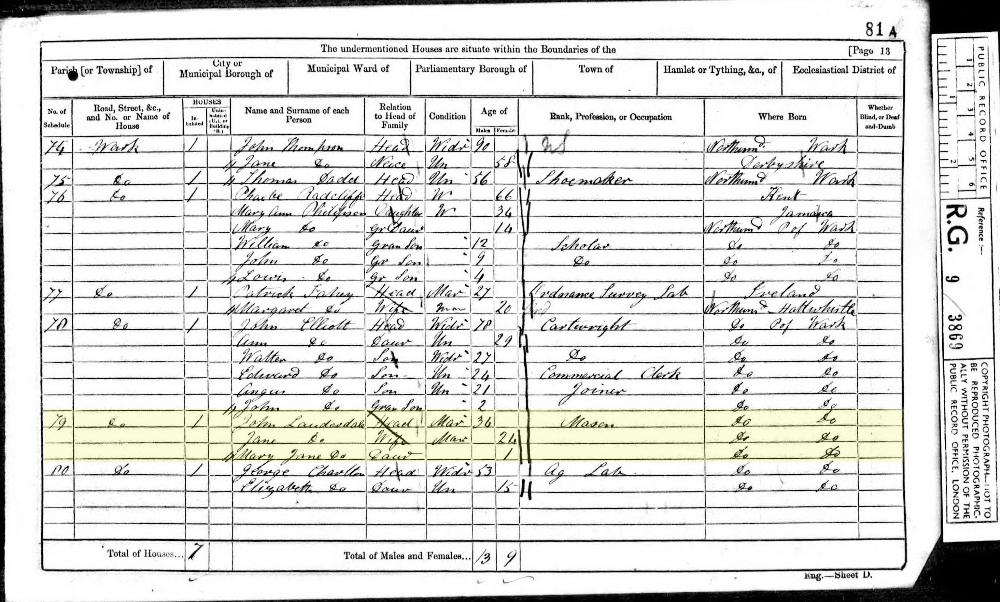 81 A
The undermentioned Houses are situate within the Boundaries of the [Page 13
Parish [or Township] of City or Municipal Borough of Municipal Ward of Parliamentary Borough of Town of Hamlet or Tything, &c., of Ecclesiastical District of
No. of Schedule Road, Street, &c., and No. or Name of House HOUSES In-habited Unin-habited (U.), or Building (B.) Name and Surname of each Person Relation to Head of Family Condition Age of Males Females Rank, Profession, or Occupation Where Born Whether Blind, or Deaf-and-Dumb
74 Wark 1 John Thompson Head Widr 90 Northumd Wark
Jane Do Neice Un 58 Derbyshire
75 Do 1 Thomas Dadd Head Un 56 Shoemaker Northumd Wark
76 Do 1 Phoebe Radcliffe Head W 66 Kent
Mary Ann Philipson Daughter W 34 Jamaica
Mary Do Gr Daur 14 Northumd P of Wark
William Do Gran Son 12 Scholar Do Do
John Do Gr Son 9 Do Do Do
Lowis Do Gr Son 4 Do Do
77 Do 1 Patrick Fahey Head Mar 27 Ordnance Survey Lab Ireland
Margaret Do Wife 20 Northumd Haltwhistle
78 Do 1 John Elliott Head Widr 78 Cartwright Do P of Wark
Ann Do Daur Un 29 Do Do
Walter Do Son Widr 27 Do Do Do
Edward Do Son Un 24 Commercial Clerk Do Do
Angus Do Son Un 21 Joiner Do Do
John Do Gran Son 2 Do Do
79 Do 1 John Lauderdale Head Mar 36 Mason Do Do
Jane Do Wife Mar 24 Do Do
Mary Jane Do Daur 1 Do Do
80 Do 1 George Charlton Head Widr 53 Ag Lab Do Do
Elizabeth Do Daur Un 15 Do Do
Total of Houses... 7 Total of Males and Females... 13 9
Eng.—Sheet D.
PUBLIC RECORD OFFICE
1 2 3 4 5 6
Reference:—
R.G. 9 3869
COPYRIGHT PHOTOGRAPH—NOT TO
BE REPRODUCED PHOTOGRAPHIC-
ALLY WITHOUT PERMISSION OF THE
PUBLIC RECORD OFFICE, LONDON